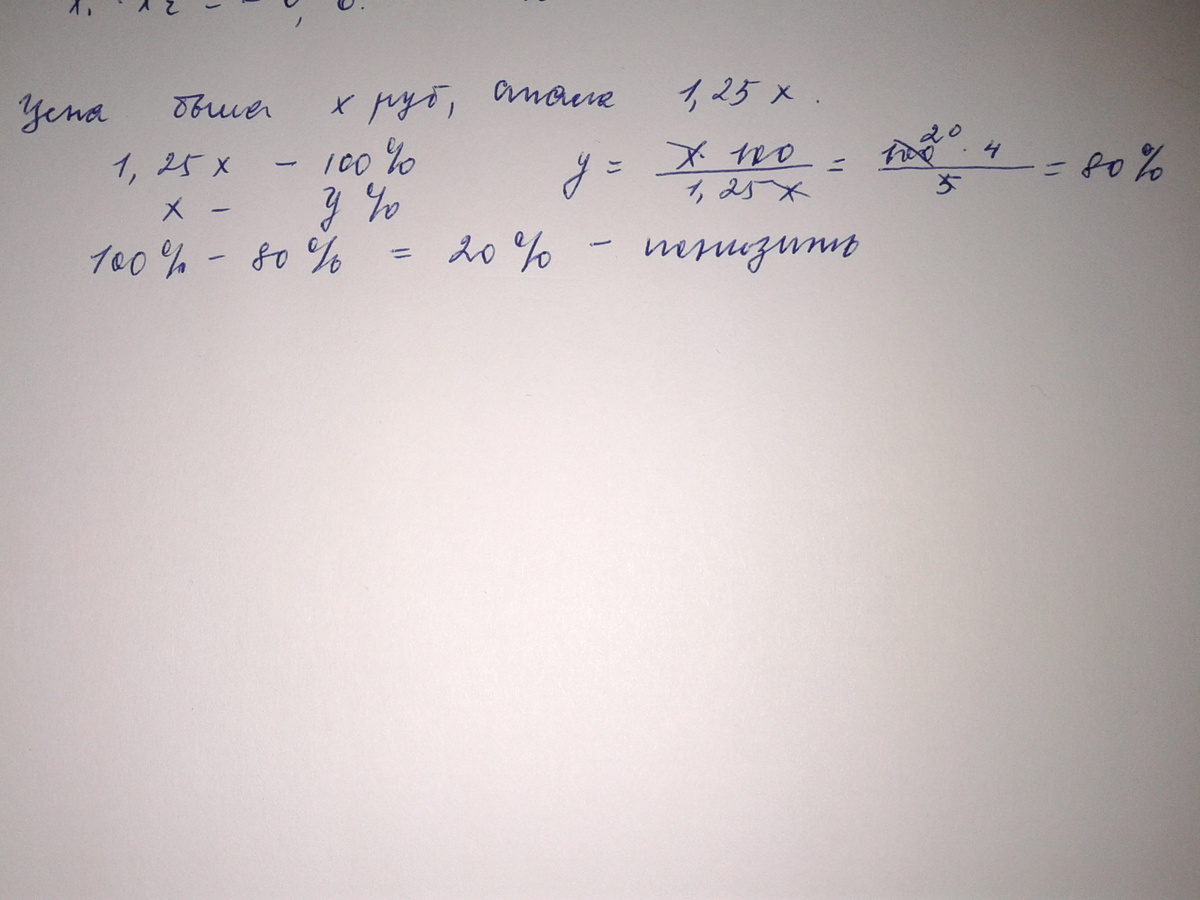 Цена была x руб, стала 1,25 x.
1,25 x - 100% y = x · 100 / 1,25 x = 100 20 · 4 / 5 = 80%
x - y %
100% - 80% = 20% - понизить